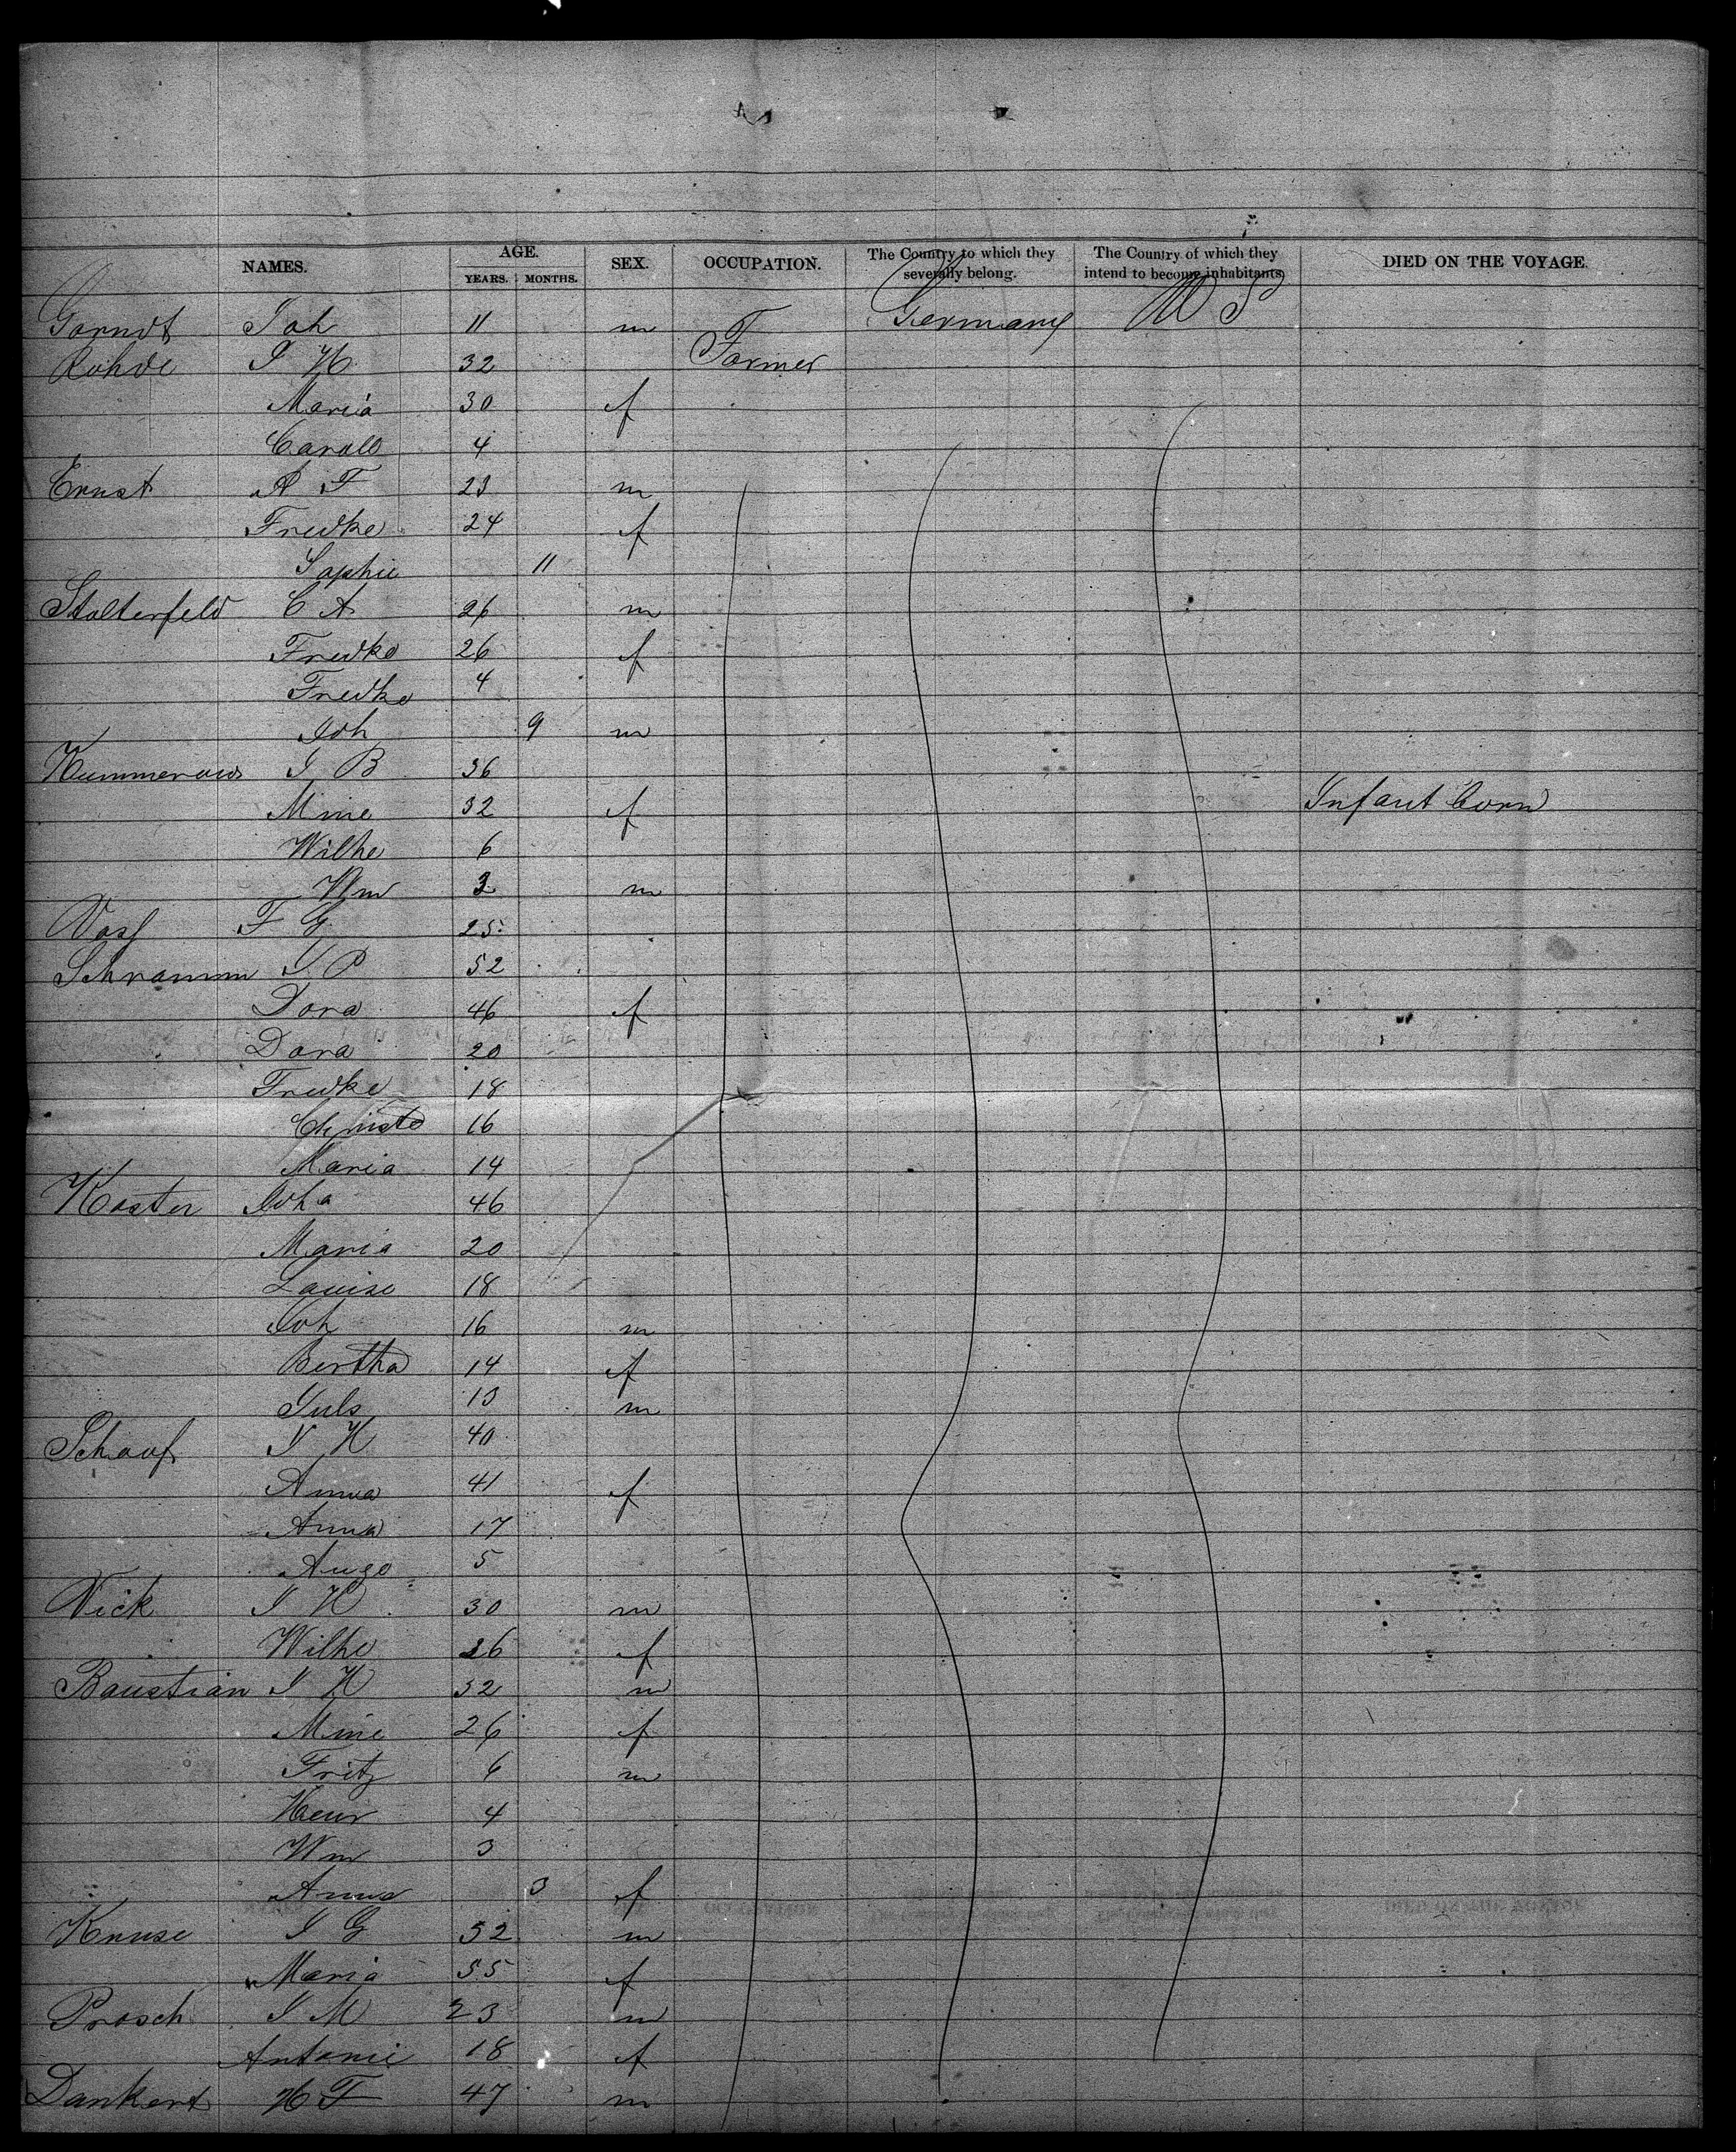 NAMES. AGE. SEX. OCCUPATION. The Country to which they severally belong. The Country of which they intend to become inhabitants DIED ON THE VOYAGE.
YEARS. MONTHS.
Joh 11 m Germany U S
Rohde J H 32 Farmer
Maria 30 f
Carol 4
Ernst A F 23 m
Fredke 24 f
Sophie 11
Stalterfeld C A 26 m
Fredke 26 f
Fredke 4
Joh 9 m
Kummerow J B 36
Mine 32 f Infant born
Wilhe 6
Wm 3 m
Vass F G 25
Schramm J P 52
Dora 46 f
Dora 20
Fredke 18
Christe 16
Maria 14
Koster Joha 46
Maria 20
Louise 18
Joh 16 m
Bertha 14 f
Juls 13 m
Schoof J H 40
Anna 41 f
Anna 17
5
Vick J H 30 m
Wilhe 26 f
Baustian J H 32 m
Mine 26 f
Fritz 6 m
Heinr 4
Wm 3
Anna 3 f
Kruse J G 52 m
Maria 55 f
Prosch J M 23 m
Antonie 18 f
Dankert H F 47 m